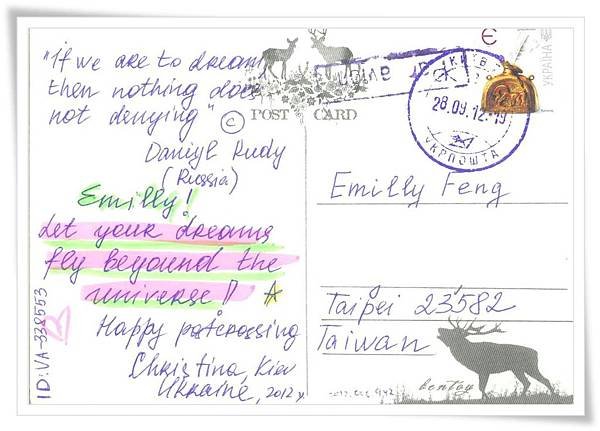 "If we are to dream
then nothing does
not denying" ©
Daniyl Rudy
(Russia)
Emilly!
Let your dreams
fly beyound the
universe!
Happy postcrossing
Christina, Kiev
Ukraine, 2012
ID: VA-338553
POST CARD
УКРАЇНА
Є
КИЇВ
28.09.12-19
УКРПОШТА
Emilly Feng
Taipei 23582
Taiwan